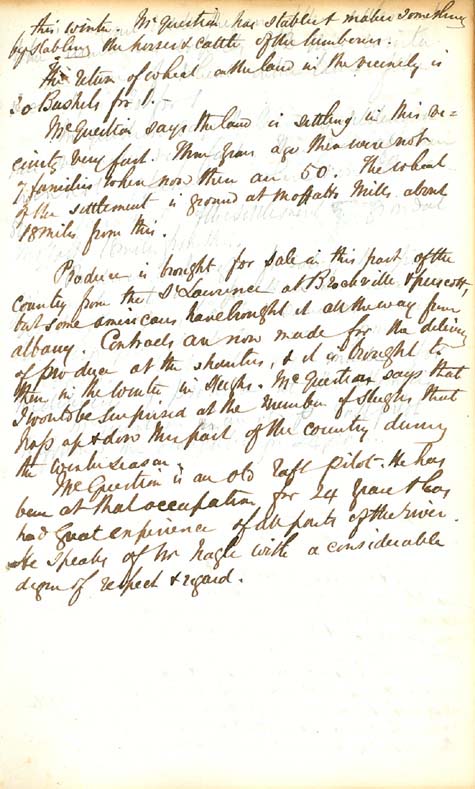 this winter. McQuestion has stables & makes something
by stabling the horses & cattle of the lumberers.
The return of wheat on the land in the vicinity is
20 Bushels for 1.
McQuestion says the land is settling in this vi=
cinity very fast. Three years ago there were not
7 families when now there are 50. The wheat
of the settlement is ground at Moffatts Mills about
18 miles from this.
Produce is brought for sale in this part of the
country from the St Lawrence at Brockville & prescott,
but some americans have brought it all the way from
albany. Contracts are now made for the delivery
of produce at the shanties, & it is brought to
them in the winter in sleighs. McQuestion says that
I would be surprised at the number of sleighs that
pass up & down this part of the country during
the winter season.
McQuestion is an old raft Pilot. He has
been at that occupation for 24 years & has
had great experience of all parts of the river.
He speaks of Mr Nagle with a considerable
degree of respect & regard.